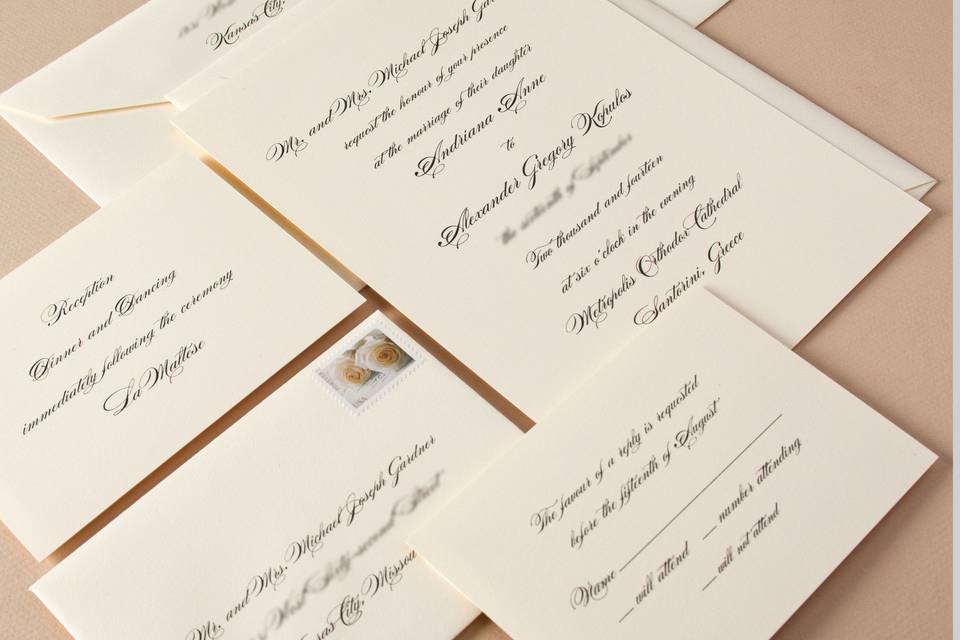 Kansas City,
Mr. and Mrs. Michael Joseph
request the honour of your presence
at the marriage of their daughter
Andriana Anne
to
Alexander Gregory Kopulos
Two thousand and fourteen
at six o'clock in the evening
Metropolis Orthodox Cathedral
Santorini, Greece
Reception
Dinner and Dancing
immediately following the ceremony
La Maltése
USA
Mr. and Mrs. Michael Joseph Gardner
City,
The favour of a reply is requested
before the fifteenth of August
Name
will attend
number attending
will not attend